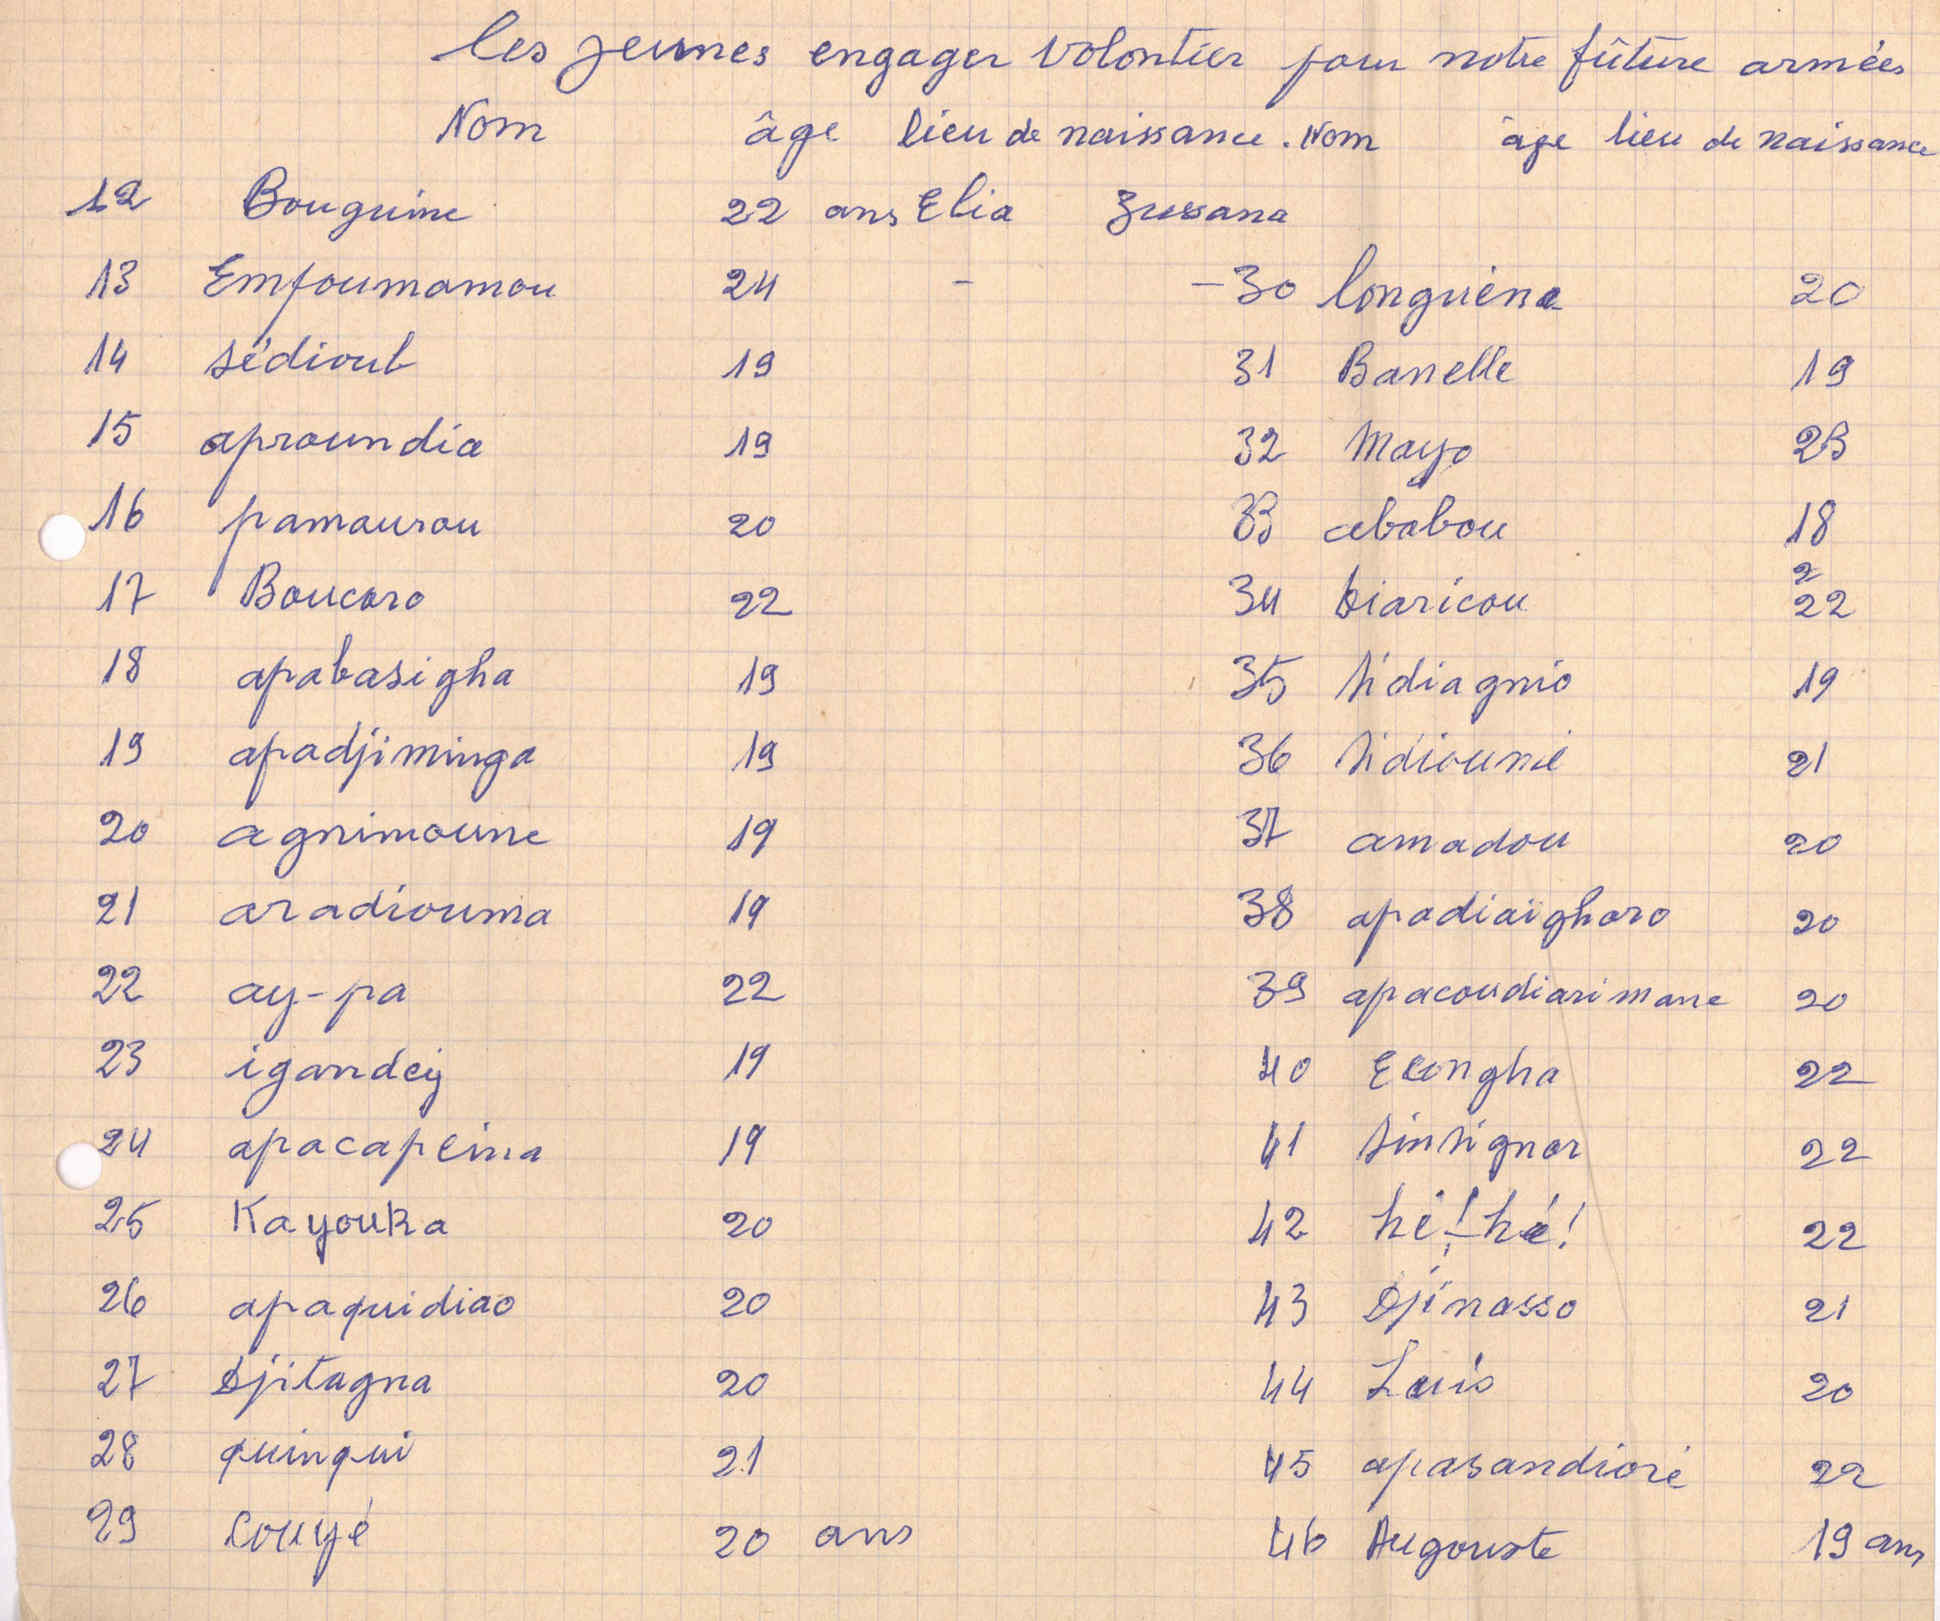 les jeunes engager volontier pour notre fûture armées
Nom âge lieu de naissance. Nom âge lieu de naissance
12 Bouguine 22 ans Elia Zussana
13 Emfoumamou 24 - - 30 longuéna 20
14 sédioub 19 31 Banelle 19
15 aproundia 19 32 Mayo 23
16 pamaurou 20 33 ababou 18
17 Boucaro 22 34 biaricou 22
18 apabasigha 19 35 sidiagnio 19
19 apadjiminga 19 36 sidiounié 21
20 agnimoune 19 37 amadou 20
21 aradiouma 19 38 apadiaïgharo 20
22 ay-pa 22 39 apacoudiarimane 20
23 igandeij 19 40 Econgha 22
24 apacapeina 19 41 sinsignor 22
25 Kayouka 20 42 hé!-hé! 22
26 apaquidiao 20 43 Djinasso 21
27 Djitagna 20 44 Louis 20
28 quinqui 21 45 apasandioré 22
29 couyé 20 ans 46 Augouste 19 ans